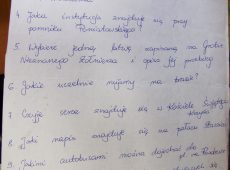 4 Jaka instytucja znajduje się przy
pomniku Poniatowskiego?
5 Wybierz jedną bitwę zapisaną na Grobie
Nieznanego Żołnierza i opisz jej przebieg
6 Jakie uczelnie mijamy na trasie?
7 Czyje serce znajduje się w Kościele Świętego
Krzyża
8 Jaki napis znajduje się na pałacu Staszica
9 Jakimi autobusami można dojechać do